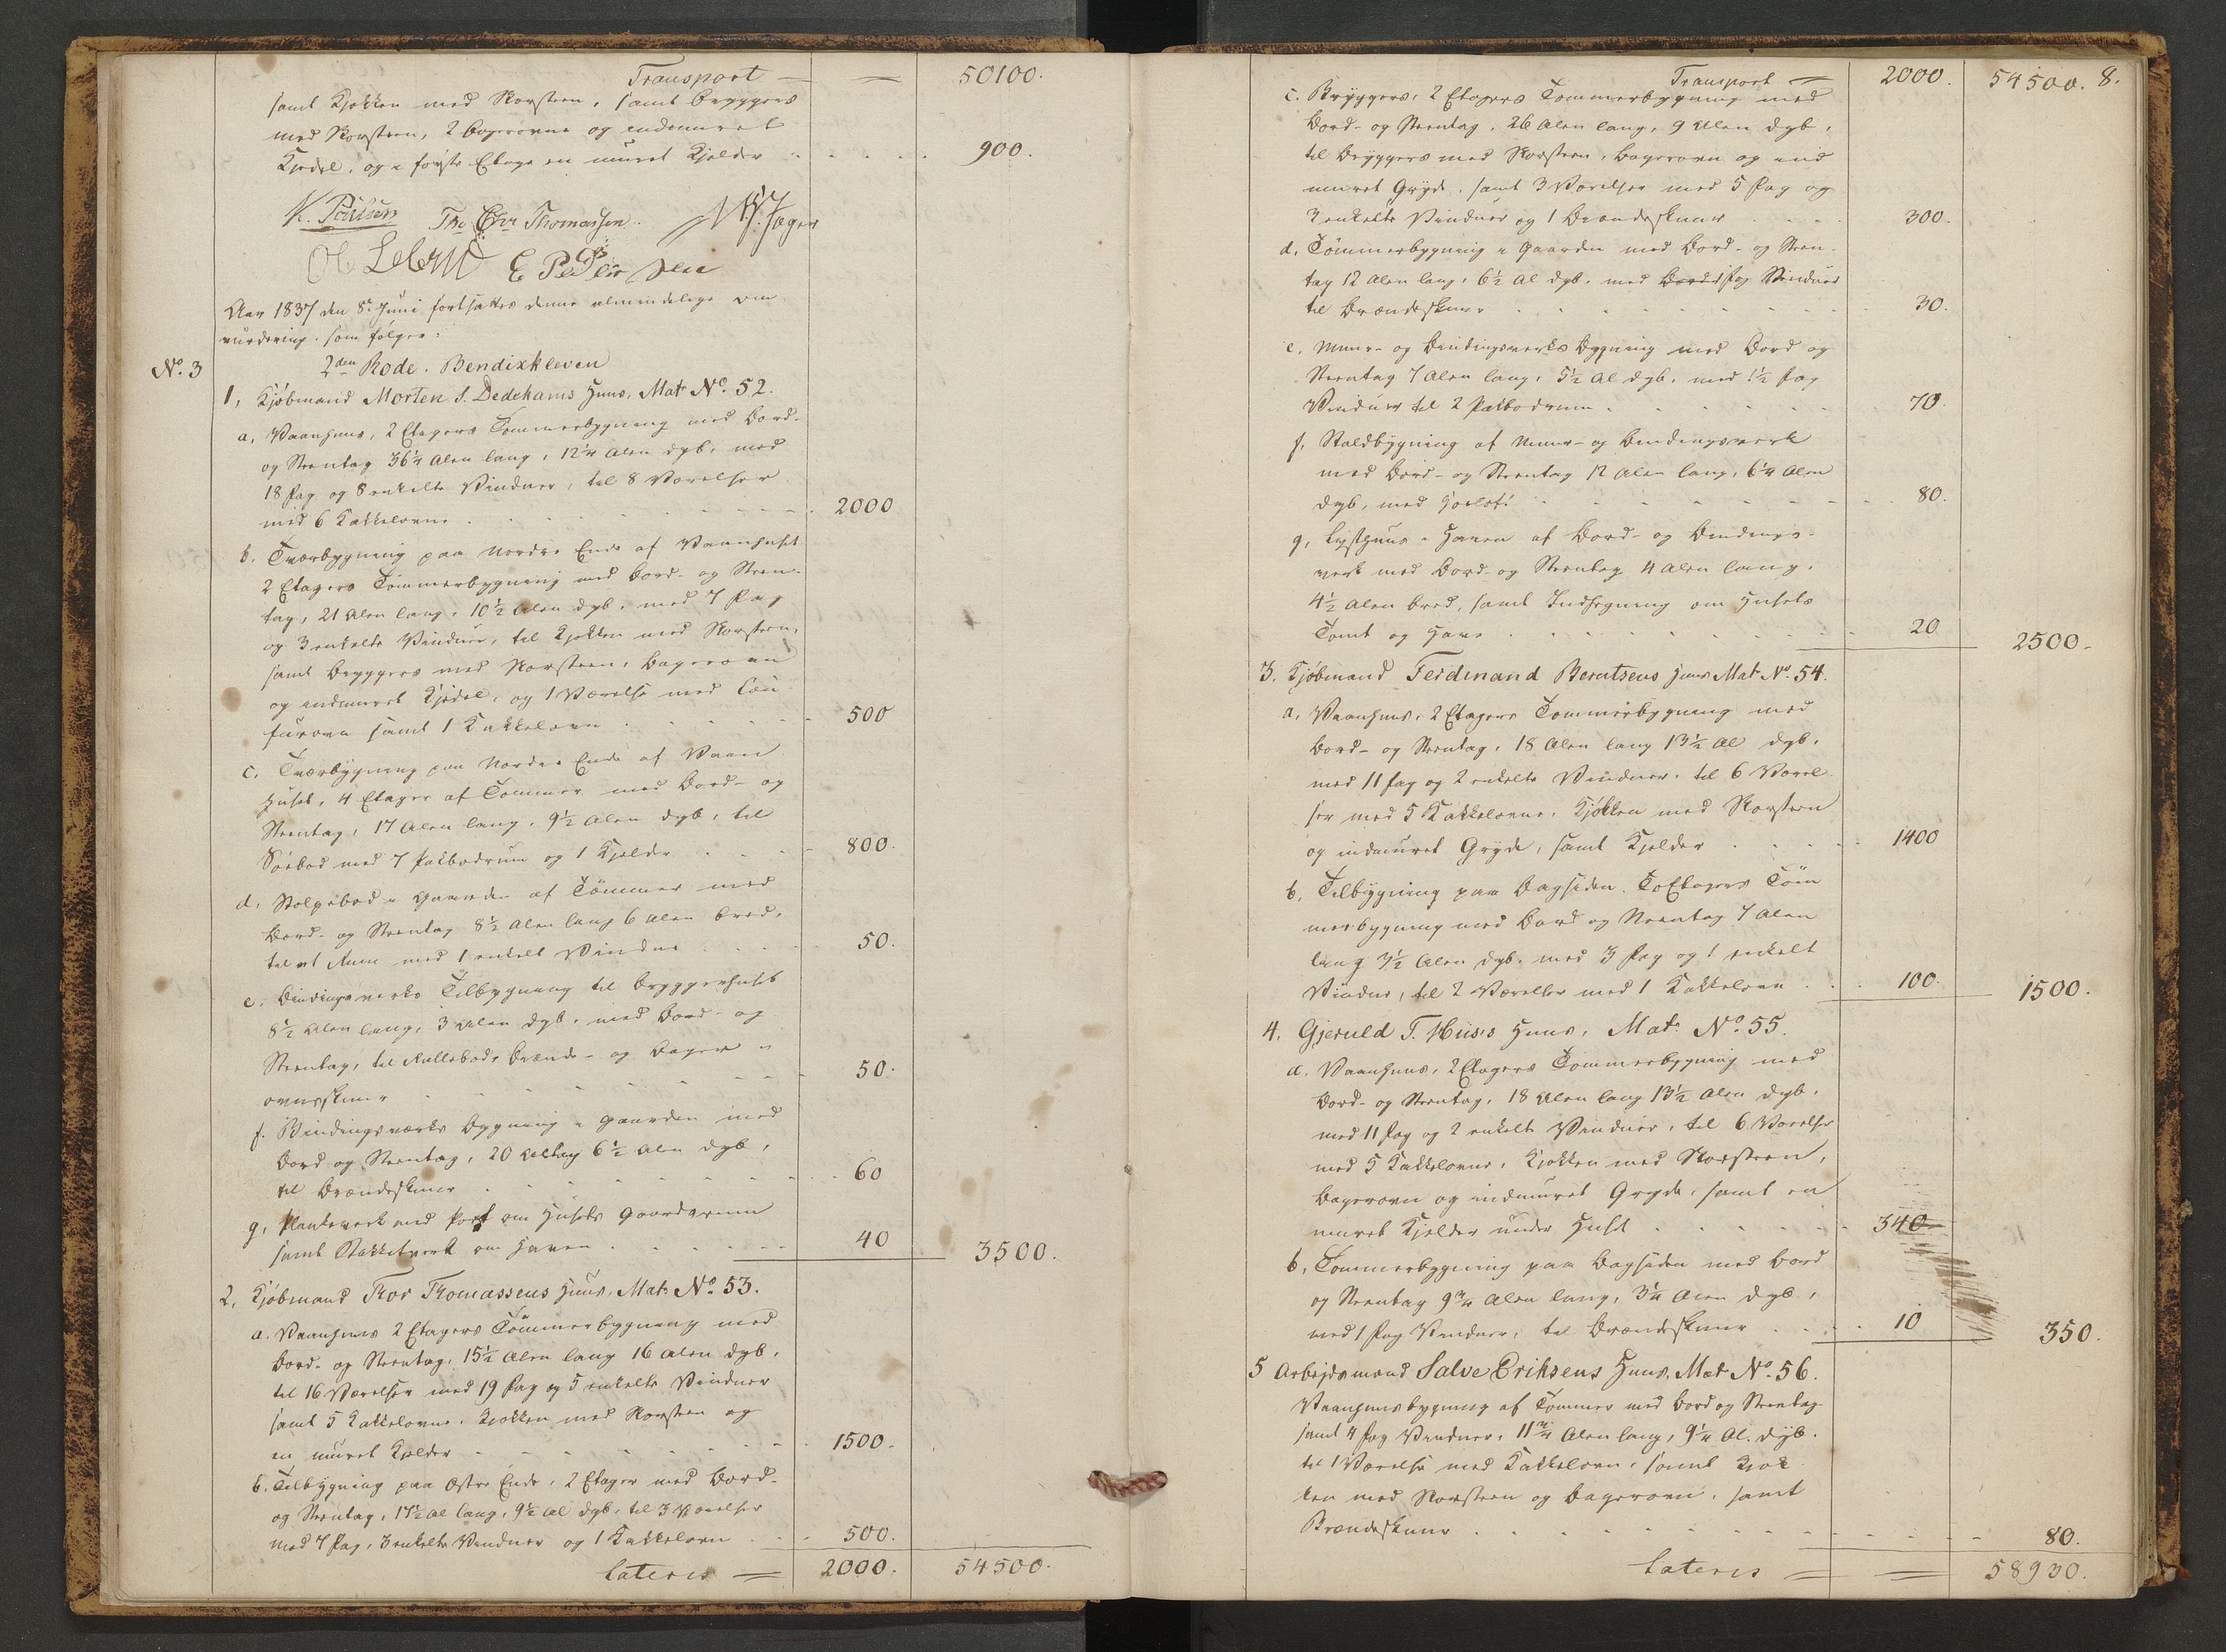 Transport — — 50100.
samt Kjøkken med Skorsteen, samt Bryggers
med Skorsteen, 2 Bagerovne og indmuret
Kjedel, og i første Etage en muret Kjelder 900.
K. Poulsen Tho Chr Thomassen. Jager
E P
Aar 1837 den 8de Juni fortsattes denne almindelige om
vurdering, som følger:
No. 3 2den Rode. Bendixkleven
1, Kjøbmand Morten S. Dedekams Huus, Mat No. 52.
a, Vaanhuus, 2 Etagers Tømmerbygning med Bord-
og Steentag 36¼ Alen lang, 12¼ Alen dyb, med
18 Fag og 8 enkelte Vinduer, til 8 Værelser
med 6 Kakkelovne 2000
b. Tværbygning paa Nordre Ende af Vaanhuset
2 Etagers Tømmerbygning med Bord- og Steen-
tag, 21 Alen lang, 10½ Alen dyb, med 7 Fag
og 3 enkelte Vinduer, til Kjøkken med Skorsteen,
samt Bryggers med Skorsteen, Bagerovn
og indmuret Kjedel, og 1 Værelse med Con-
furovn samt 1 Kakkelovn 500
c. Tværbygning paa Nordre Ende af Vaan
huset, 4 Etager af Tømmer med Bord- og
Steentag, 17 Alen lang, 9½ Alen dyb, til
Søebod med 7 Pakbodrum og 1 Kjelder 800.
d. Stolpebod i Gaarden af Tømmer med
Bord- og Steentag 8½ Alen lang 6 Alen bred,
til et Rum med 1 enkelt Vindue 50.
e. Bindingsverks Tilbygning til Bryggershuset
8½ Alen lang, 3 Alen dyb, med Bord- og
Steentag, til Rullebod, Brænde- og Bager-
ovnsskuur 50.
f. Bindingsverks Bygning i Gaarden med
Bord og Steentag, 20 Al lang 6½ Alen dyb,
til Brændeskuur 60
g, Plankeverk med Port om Husets Gaardsrum
samt Stakketverk om Haven 40 3500.
2, Kjøbmand Thor Thomassens Huus, Mat. No. 53.
a. Vaanhuus 2 Etagers Tømmerbygning med
Bord- og Steentag, 15½ Alen lang 16 Alen dyb,
til 16 Værelser med 19 Fag og 5 enkelte Vinduer
samt 5 Kakkelovne, Kjøkken med Skorsteen og
en muret Kjelder 1500.
b. Tilbygning paa Østre Ende, 2 Etager med Bord-
og Steentag, 17½ Al lang, 9½ Al dyb, til 3 Værelser
med 7 Fag, 3 enkelte Vinduer og 1 Kakkelovn 500.
Lateris = 2000. 54500.
Transport = 2000. 54500. 8.
c. Bryggers, 2 Etagers Tømmerbygning med
Bord- og Steentag, 26 Alen lang, 9 Alen dyb,
til Bryggers med Skorsteen, Bagerovn og ind
muret Gryde, samt 3 Værelser med 5 Fag og
3 enkelte Vinduer og 1 Brændeskuur 300.
d, Tømmerbygning i Gaarden med Bord- og Steen-
tag 12 Alen lang, 6½ Al dyb, med Bord 1 Fag Vinduer
til Brændeskuur 30.
e. Muur- og Bindingsverks Bygning med Bord og
Steentag 7 Alen lang, 5½ Al dyb, med 1½ Fag
Vinduer til 2 Pakbodrum 70.
f, Staldbygning af Muur- og Bindingsverk
med Bord- og Steentag 12 Alen lang, 6¼ Alen
dyb, med Høeloft 80.
g, Lysthuus i Haven af Bord- og Bindings-
verk med Bord og Steentag 4 Alen lang,
4½ Alen bred, samt Indhegning om Husets
Tomt og Have 20 2500.
3. Kjøbmand Ferdinand Berntsens Huus Mat No. 54.
a, Vaanhuus, 2 Etagers Tømmerbygning med
Bord- og Steentag, 18 Alen lang 13½ Al dyb,
med 11 Fag og 2 enkelte Vinduer, til 6 Værel-
ser med 5 Kakkelovne, Kjøkken med Skorsteen
og indmuret Gryde, samt Kjelder 1400
b. Tilbygning paa Bagsiden. To Etagers Tøm
merbygning med Bord og Steentag 7 Alen
lang 3½ Alen dyb, med 3 Fag og 1 enkelt
Vindue, til 2 Værelser med 1 Kakkelovn 100. 1500.
4, Gjeruld T. Huus, Mat. No. 55.
a. Vaanhuus, 2 Etagers Tømmerbygning med
Bord- og Steentag, 18 Alen lang 13½ Alen dyb,
med 11 Fag og 2 enkelte Vinduer, til 6 Værelser
med 5 Kakkelovne, Kjøkken med Skorsteen,
Bagerovn og indmuret Gryde, samt en
muret Kjelder under Huset 340
b, Tømmerbygning paa Bagsiden med Bord
og Steentag 9¾ Alen lang, 3¼ Alen dyb,
med 1 Fag Vinduer, til Brændeskuur 10 350.
5 Arbeidsmand Salve Eriksens Huus, Mat No. 56.
Vaanhuusbygning af Tømmer med Bord og Steentag
samt 4 Fag Vinduer, 11¾ Alen lang, 9¼ Al. dyb.
til 1 Værelse med Kakkelovn, samt Kjøk
ken med Skorsteen og Bagerovn, samt
Brændeskuur 80.
Lateris = = 58930.